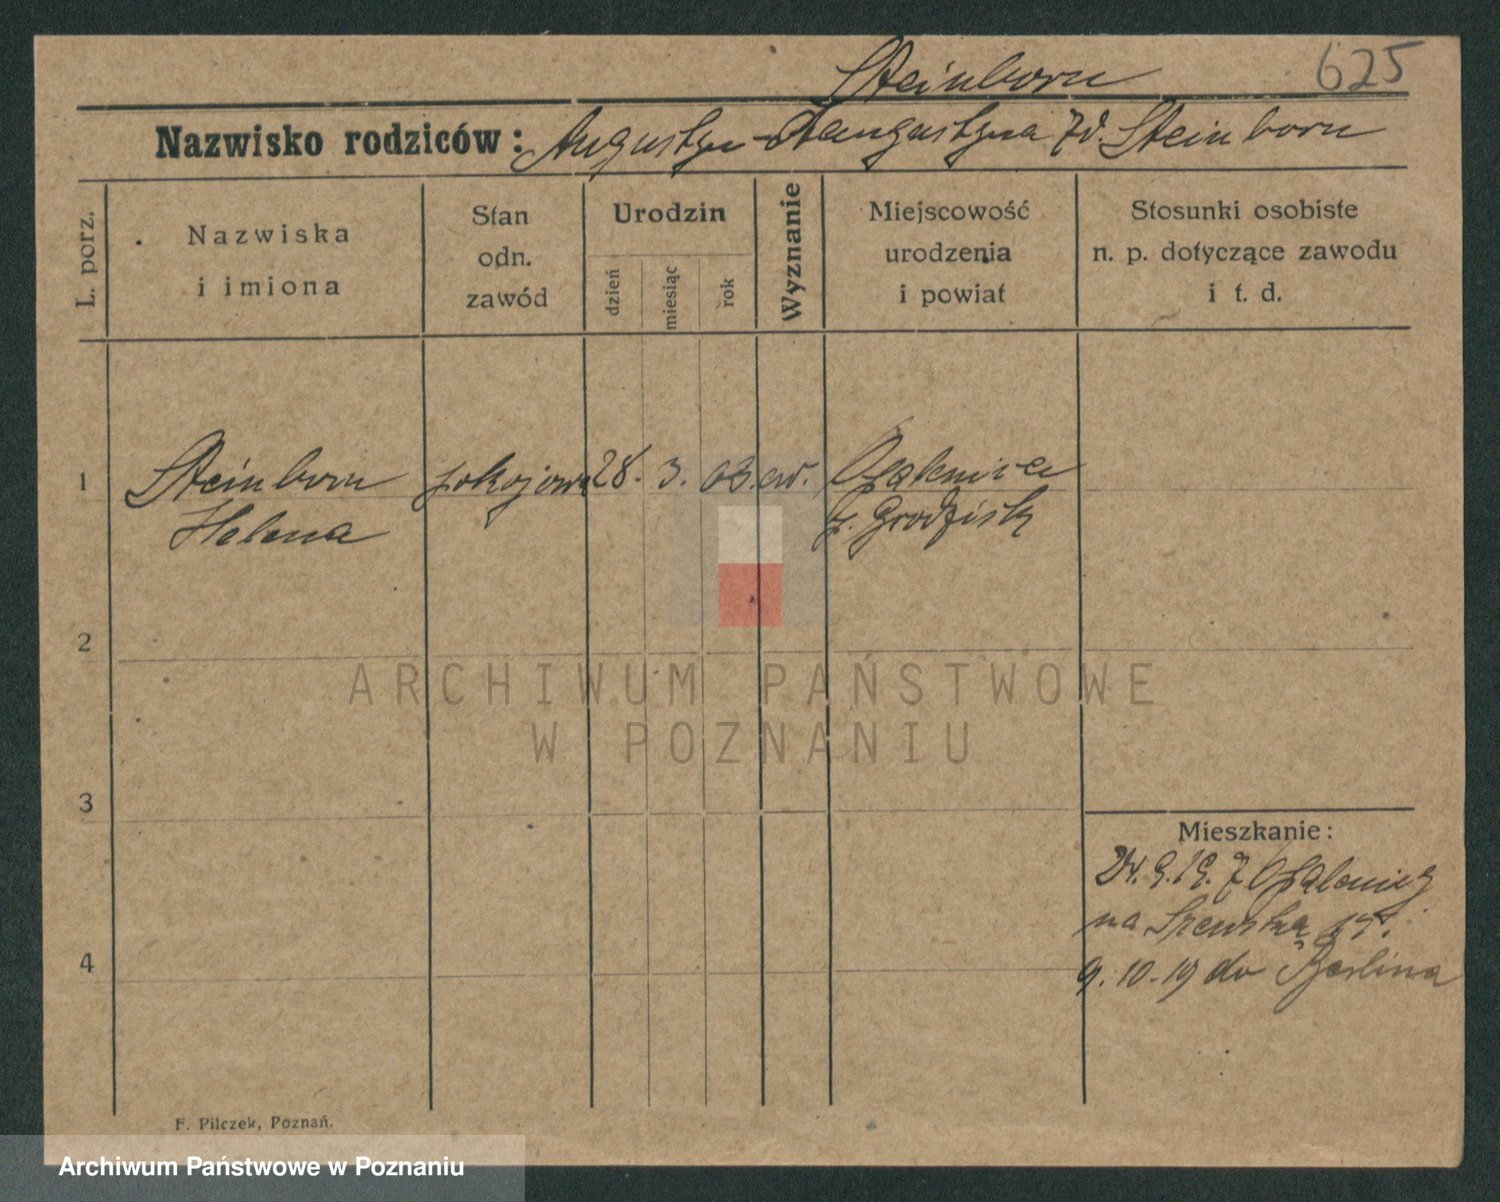 Steinborn
625
Nazwisko rodziców: Augustyn - Augustyna zd. Steinborn
L. porz.
Nazwiska
i imiona
Stan
odn.
zawód
Urodzin
dzień
miesiąc
rok
Wyznanie
Miejscowość
urodzenia
i powiat
Stosunki osobiste
n. p. dotyczące zawodu
i t. d.
1
Steinborn pokojowa 28. 3. 03. ew. Opalenica
Helena p. Grodzisk
2
ARCHIWUM PAŃSTWOWE
W POZNANIU
3
Mieszkanie:
24. 9. 19. z Opalenicy
na Szewską 17.
4
9. 10. 19 do Berlina
F. Pilczek, Poznań.
Archiwum Państwowe w Poznaniu